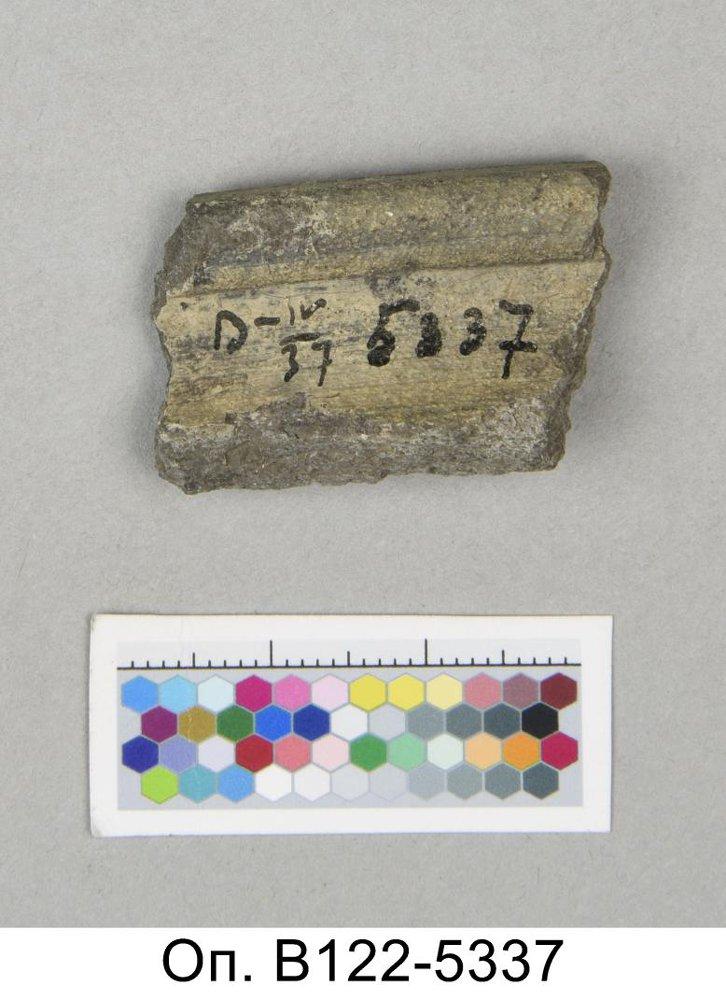 D-IV/37 5337
Оп. В122-5337